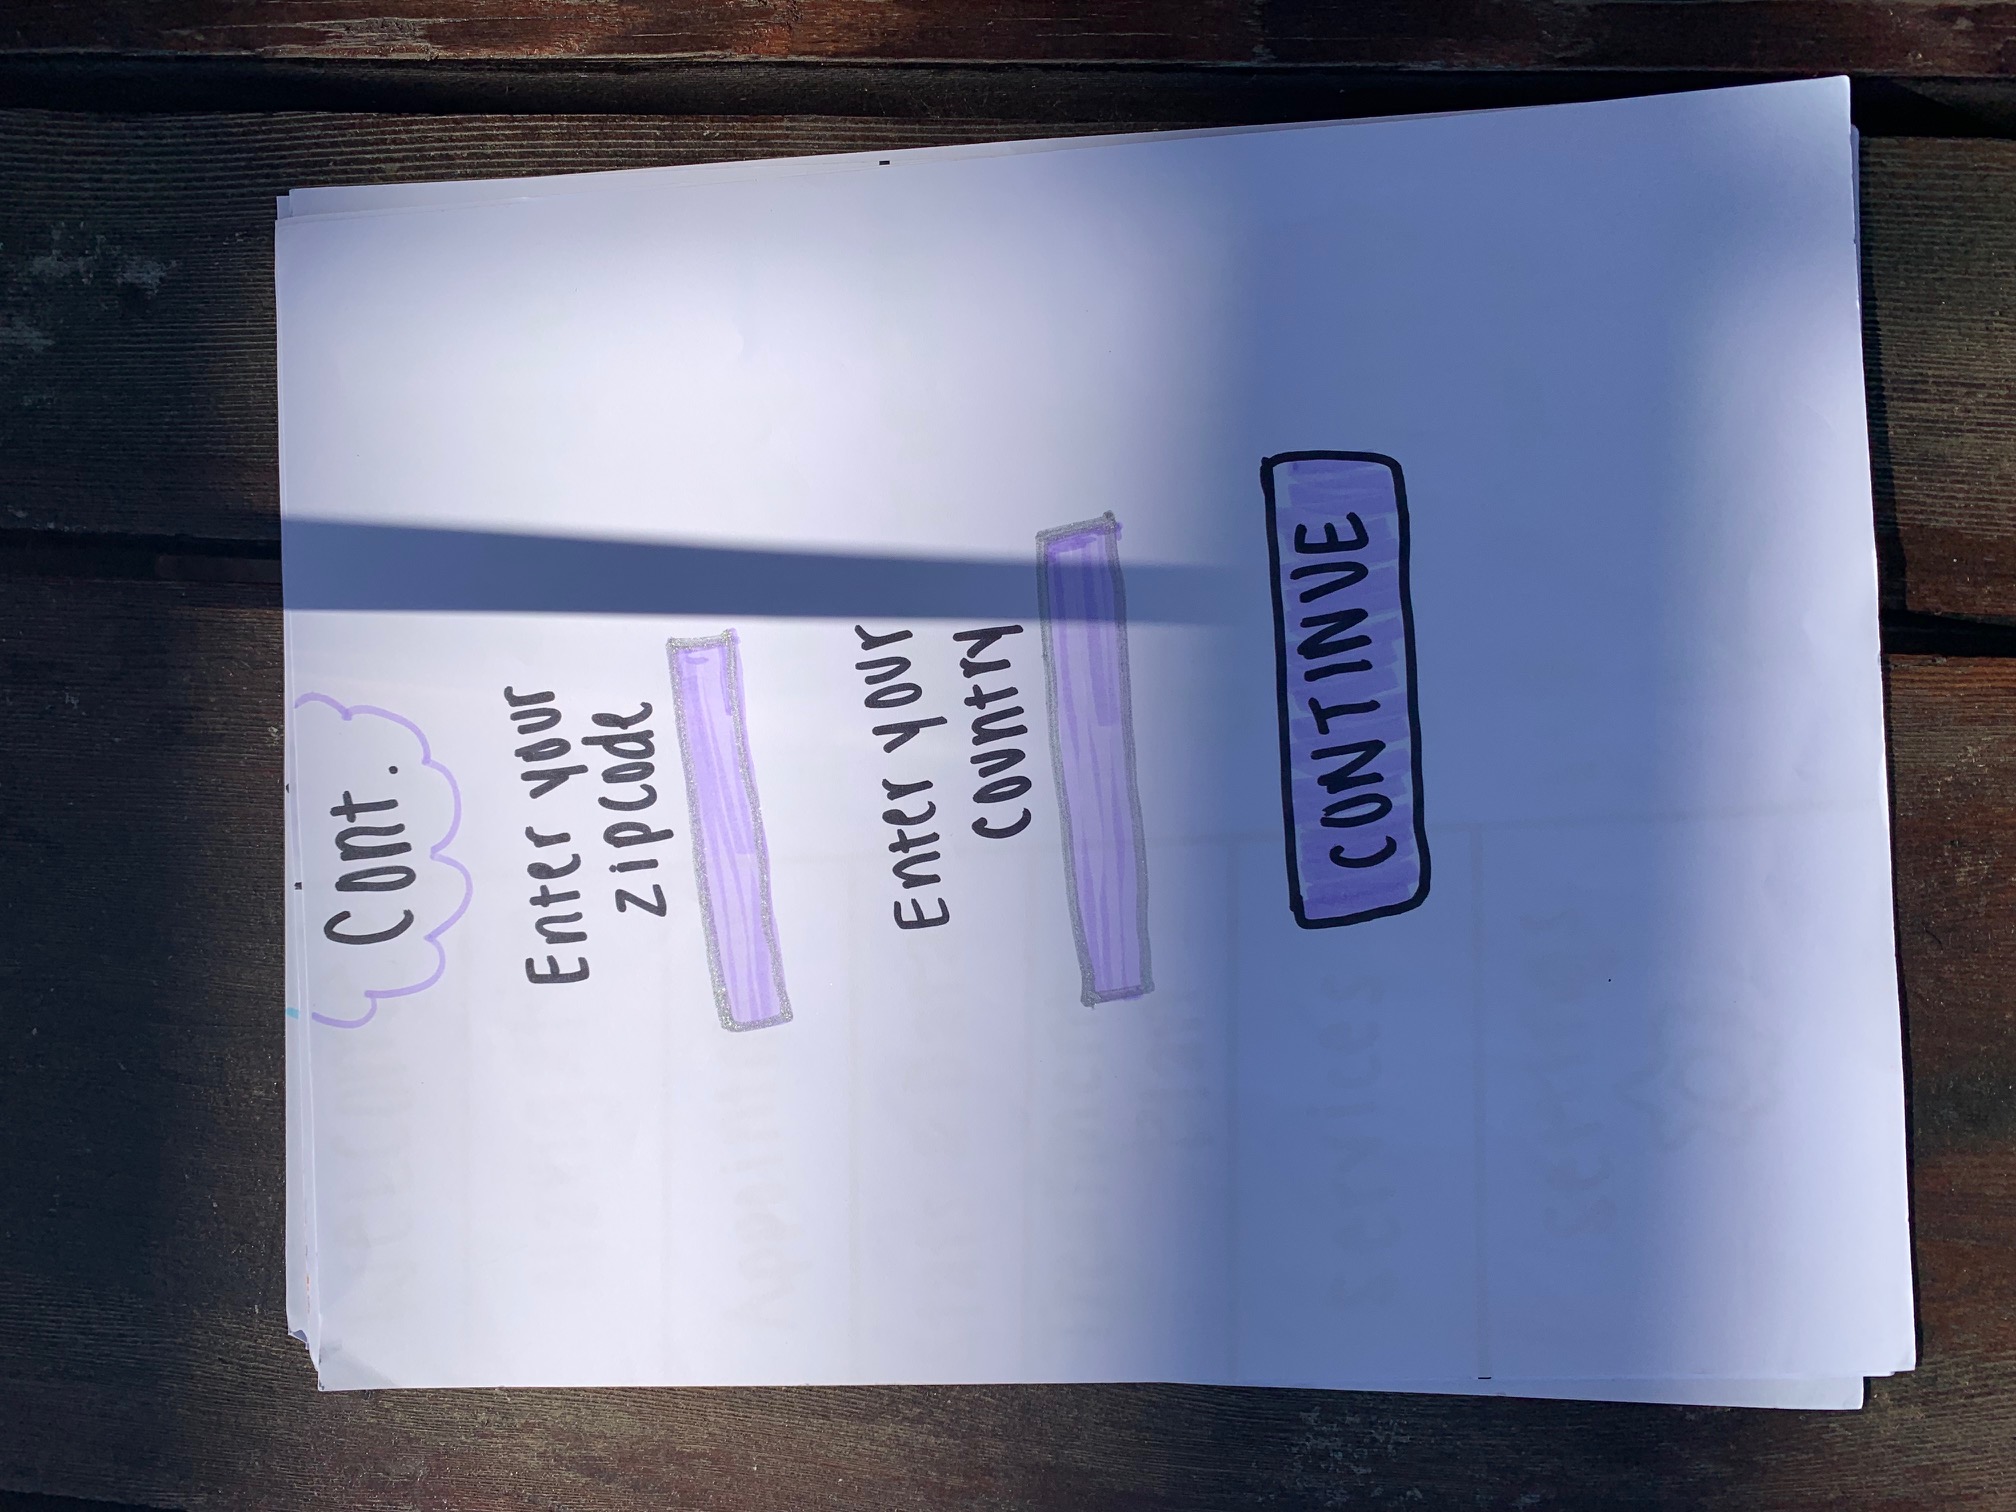 Cont.
Enter your
zipcode
Enter your
country
CONTINUE